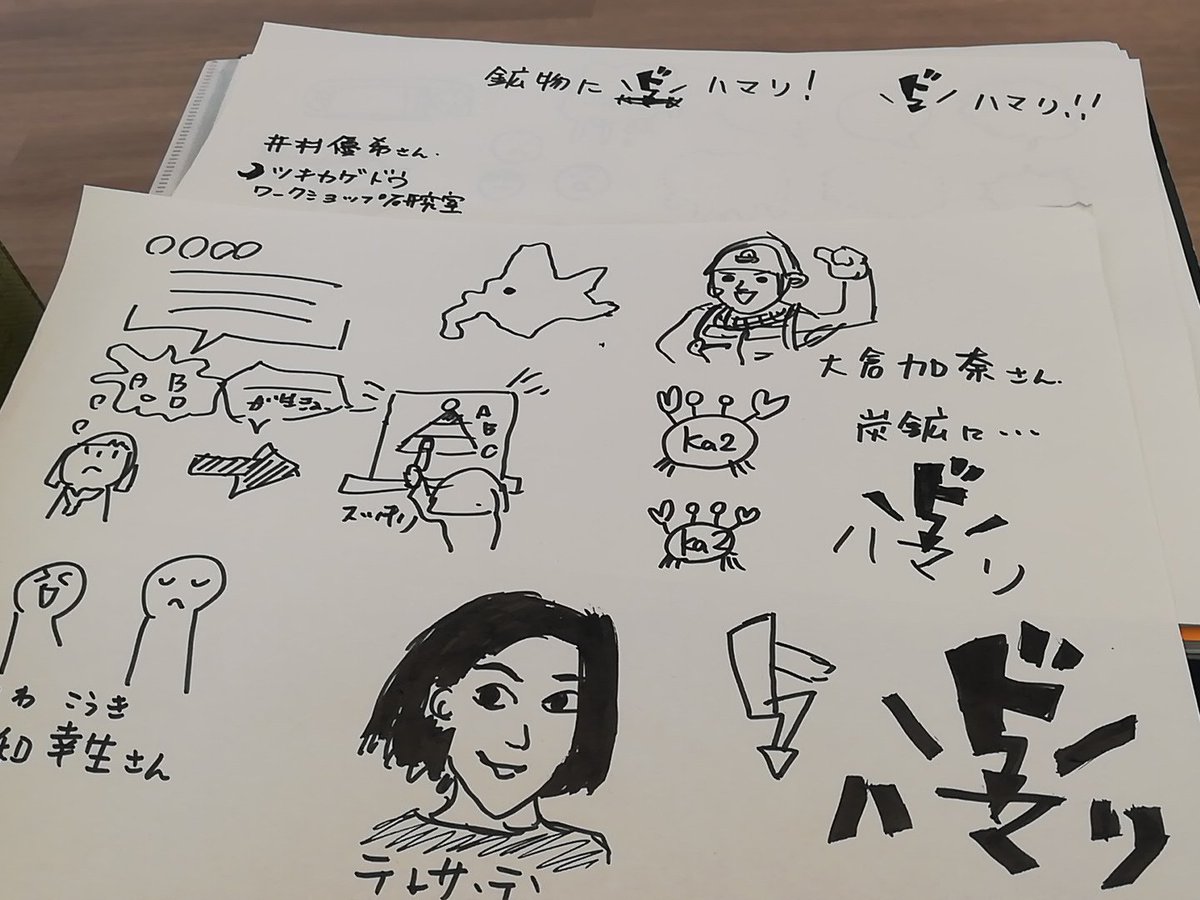 鉱物に ド ハマリ！
ド ハマリ!!
井村優希さん.
ツキカゲドウ
ワークショップ研究室
〇〇〇〇
A B
C D
がばっ
A
B
C
スッキリ
大倉加奈さん.
炭鉱に…
ドハマリ
ka2
ka2
わ こうき
知幸生さん
ドハマリ
テレサ・テ